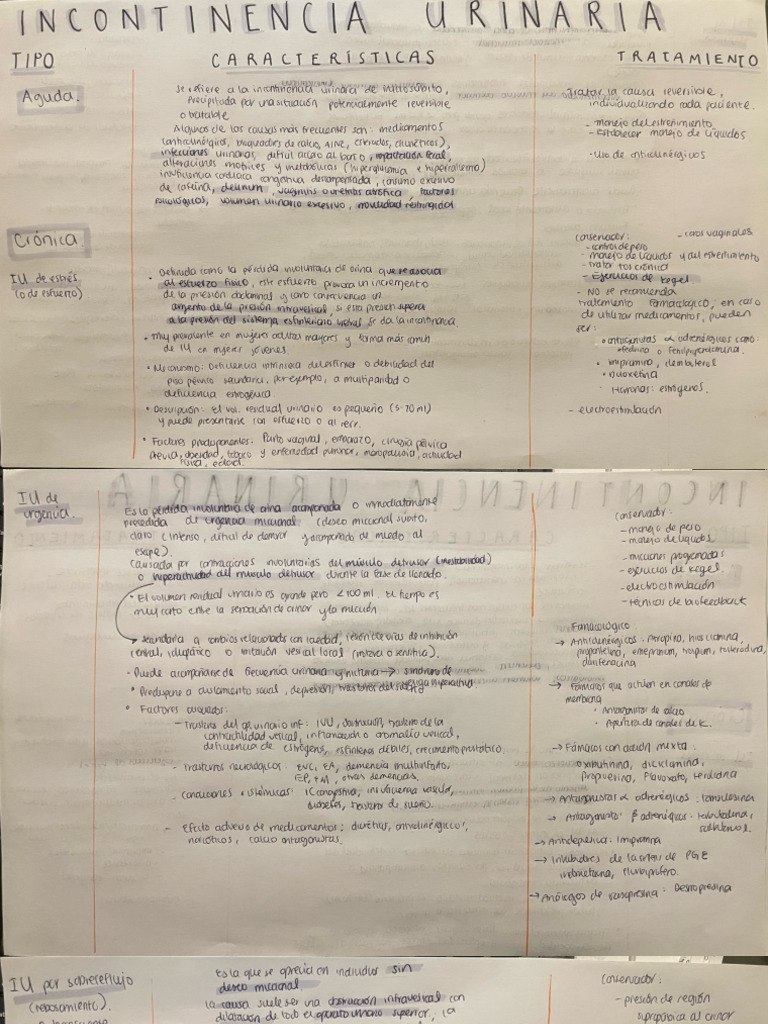 INCONTINENCIA URINARIA
TIPO
CARACTERÍSTICAS
TRATAMIENTO
Aguda.
Se refiere a la incontinencia urinaria de inicio súbito,
precipitada por una situación potencialmente reversible
o tratable
Algunos de las causas más frecuentes son: medicamentos
(anticolinérgicos, bloqueadores de calcio, AINE, esteroides, diuréticos),
infecciones urinarias, difícil acceso al baño, impactación fecal,
alteraciones motrices y metabólicas (hiperglucemia e hipercalcemia)
insuficiencia cardiaca congestiva descompensada, consumo excesivo
de cafeína, delirium, vaginitis o uretritis atrófica, factores
psicológicos, volumen urinario excesivo, movilidad restringida
Tratar la causa reversible,
individualizando cada paciente.
- manejo del estreñimiento
- establecer manejo de líquidos
- uso de anticolinérgicos
Crónica.
IU de estrés
(o de esfuerzo)
• Definida como la pérdida involuntaria de orina que se asocia
al esfuerzo físico, este esfuerzo provoca un incremento
de la presión abdominal y como consecuencia un
aumento de la presión intravesical, si esta presión supera
a la presión del sistema esfinteriano uretral se da la incontinencia.
• Muy prevalente en mujeres adultas mayores y forma más común
de IU en mujeres jóvenes.
• Mecanismo: Deficiencia intrínseca del esfínter o debilidad del
piso pélvico secundaria, por ejemplo, a multiparidad o
deficiencia estrogénica.
• Descripción: El vol. residual urinario es pequeño (5-70 ml)
y puede presentarse con esfuerzo o al reír.
• Factores predisponentes: Parto vaginal, embarazo, cirugía pélvica
previa, obesidad, tabaco y enfermedad pulmonar, menopausia, actividad
física, edad.
conservador:
- conos vaginales
- control de peso
- manejo de líquidos y del estreñimiento
- tratar tos crónica
- Ejercicios de kegel
- NO se recomienda
tratamiento farmacológico, en caso
de utilizar medicamentos, pueden
ser:
• antagonistas α adrenérgicos como:
efedrina o fenilpropanolamina.
• Imipramina, clembuterol
• Duloxetina
• Hormonas: estrógenos.
- electroestimulación
IU de
urgencia.
Es la pérdida involuntaria de orina acompañada o inmediatamente
precedida de urgencia miccional (deseo miccional súbito,
claro e intenso, difícil de demorar y acompañado de miedo al
escape).
Causada por contracciones involuntarias del músculo detrusor (inestabilidad)
o hiperactividad del músculo detrusor durante la fase de llenado.
• El volumen residual urinario es grande pero <100 ml. El tiempo es
muy corto entre la sensación de orinar y la micción
→ secundaria a cambios relacionados con la edad, lesión de vías de inhibición
central, idiopático o irritación vesical local (motora o sensitiva).
• Puede acompañarse de frecuencia urinaria y nicturia → síndrome de
vejiga hiperactiva.
• Predispone a aislamiento social, depresión, trastornos del sueño
• Factores asociados:
- Trastornos del ap urinario inf: IVU, obstrucción, trastorno de la
contractilidad vesical, inflamación o anomalía vesical,
deficiencia de estrógenos, esfínteres débiles, crecimiento prostático.
- Trastornos neurológicos: EVC, EA, demencia multiinfarto,
EP, EM, otras demencias.
- Condiciones sistémicas: IC congestiva, insuficiencia vascular,
diabetes, trastorno de sueño.
- Efecto adverso de medicamentos: diuréticos, anticolinérgicos,
narcóticos, calcio antagonistas.
conservador:
- manejo de peso
- manejo de líquidos
- micciones programadas
- ejercicios de kegel
- electroestimulación
- técnicas de biofeedback
Farmacológico:
→ Anticolinérgicos: Atropina, hiosciamina,
propantelina, emepronium, trospium, tolterodina,
darifenacina
→ Fármacos que actúen en canales de
membrana
• Antagonistas de calcio
• Apertura de canales de K.
→ Fármacos con acción mixta:
oxibutinina, diciclamina,
Propiverina, Flavoxato, terodilina
→ Antagonistas α adrenérgicos: tamsulosina
→ Antagonistas β adrenérgicos: terbutalina,
salbutamol.
→ Antidepresivo: Imipramina
→ Inhibidores de la síntesis de PGE
indometacina, flurbiprofeno.
→ Análogos de vasopresina: Desmopresina
IU por sobreflujo
(rebosamiento).
Es la que se aprecia en individuos sin
deseo miccional.
La causa suele ser una obstrucción intravesical con
dilatación de todo el aparato urinario superior, la
conservador:
- presión de región
suprapúbica al orinar